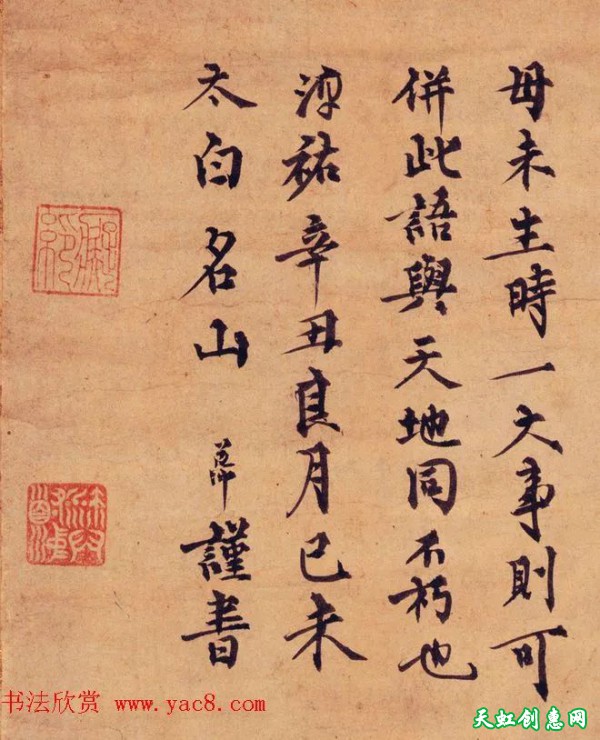 母未生時一大事則可
併此語與天地同不朽也
淳祐辛丑良月已未
太白名山 謹書
书法欣赏 www.yac8.com
天虹创惠网